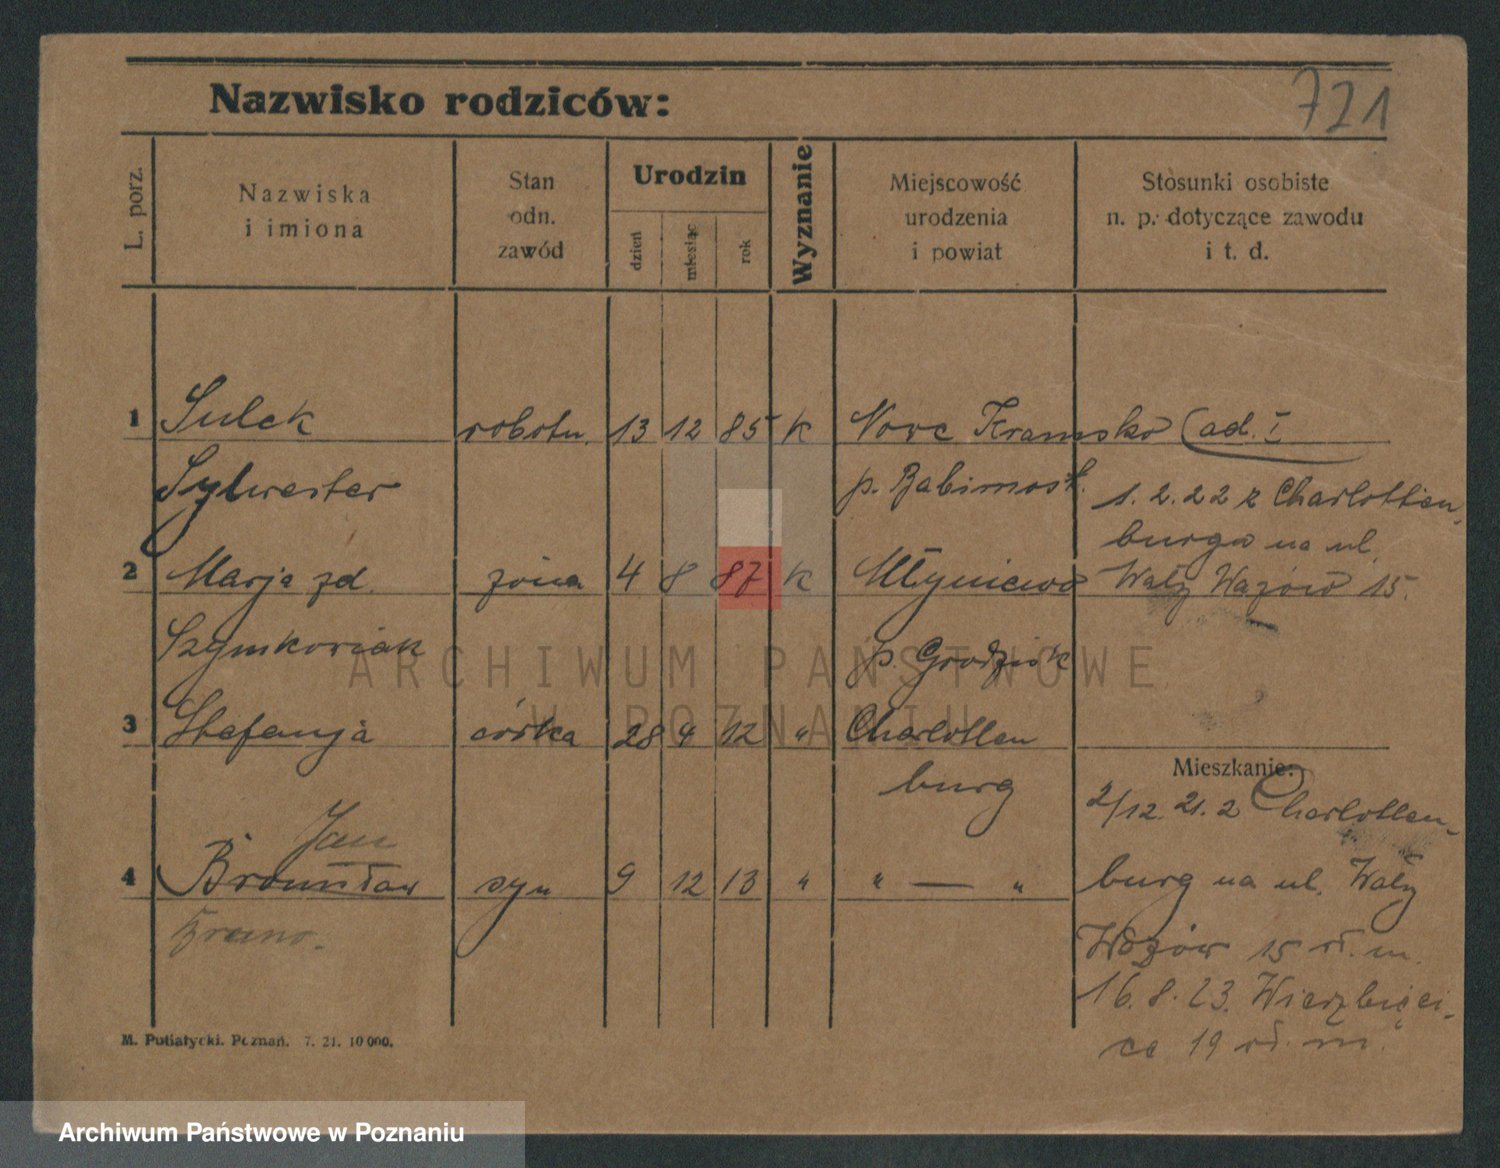 Nazwisko rodziców:
721
L. porz.
Nazwiska
i imiona
Stan
odn.
zawód
Urodzin
dzień
miesiąc
rok
Wyznanie
Miejscowość
urodzenia
i powiat
Stosunki osobiste
n. p. dotyczące zawodu
i t. d.
1 Sulek robotn. 13 12 85 k Nowe Kramsko (ad. I
Sylwester p. Babimost. 1. 2. 22 z Charlotten-
burga na ul.
2 Marja zd. żona 4 8 87 k Młyniewo Wały Wazów 15.
Szymkowiak p. Grodzisk
3 Stefanja córka 28 4 12 " Charlotten
burg
Mieszkanie:
2/12. 21. z Charlotten-
Jan
4 Bronisław syn 9 12 13 " " — " burg na ul. Wały
Wazów 15 wł. m.
16. 8. 23. Wierzbięci-
ce 19 wł. m.
M. Putiatycki. Poznań. 7. 21. 10 000.
ARCHIWUM PAŃSTWOWE
W POZNANIU
Archiwum Państwowe w Poznaniu